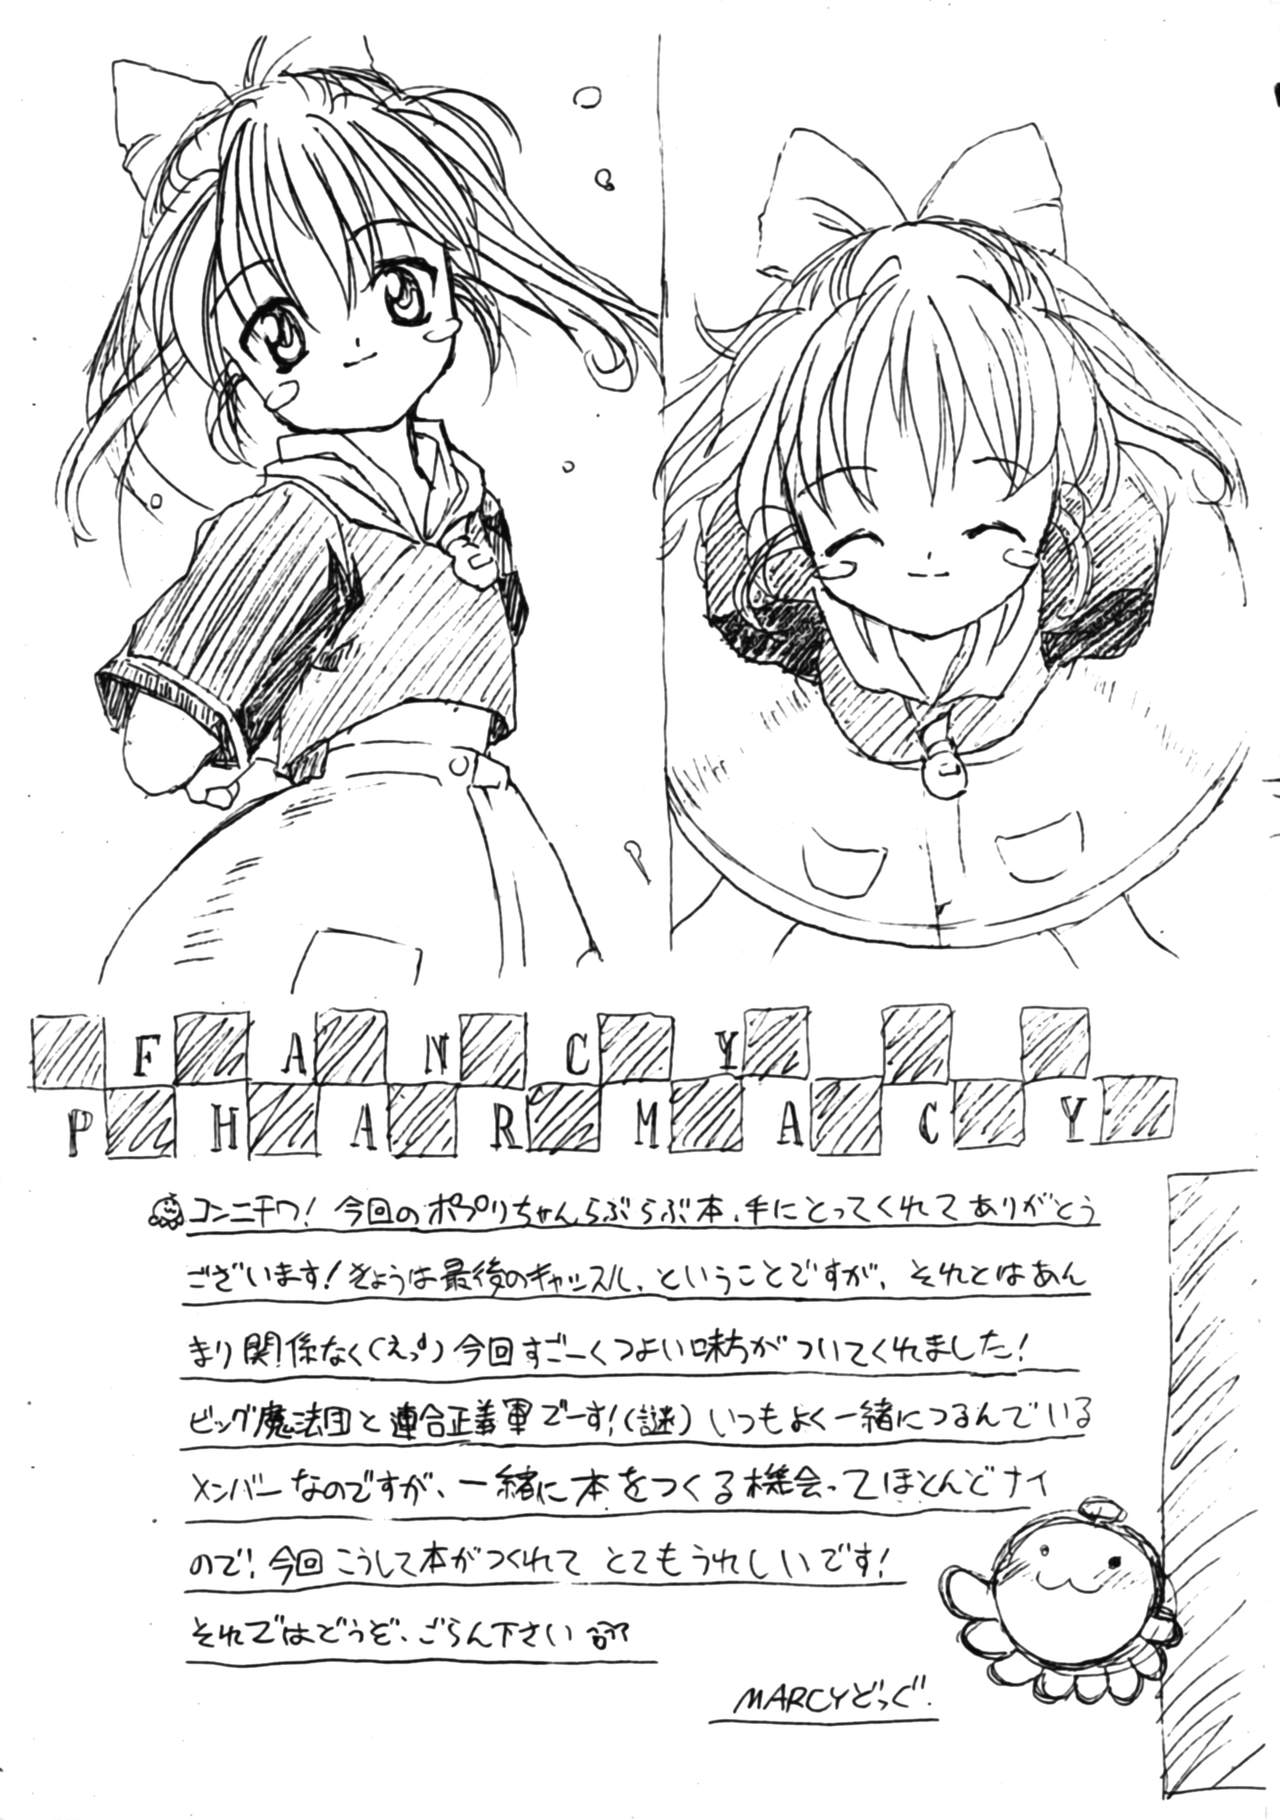 FANCY
PHARMACY
コンニチワ！今回のポプリちゃんらぶらぶ本、手にとってくれてありがとう
ございます！きょうは最後のキャッスル、ということですが、それとはあん
まり関係なく(えっ)今回すごーくつよい味方がついてくれました！
ビッグ魔法団と連合正義軍でーす！(謎)いつもよく一緒につるんでいる
メンバーなのですが、一緒に本をつくる機会ってほとんどナイ
ので！今回こうして本がつくれてとてもうれしいです！
それではどうぞ、ごらん下さい
MARCYどっぐ．